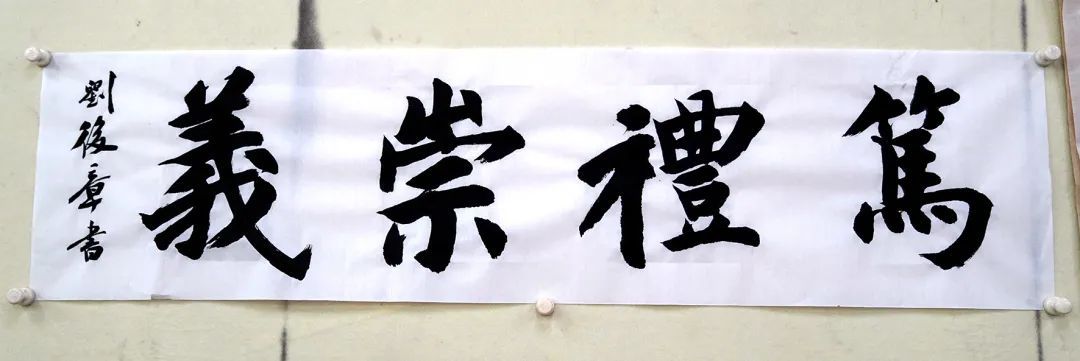 篤禮崇義
劉後章書